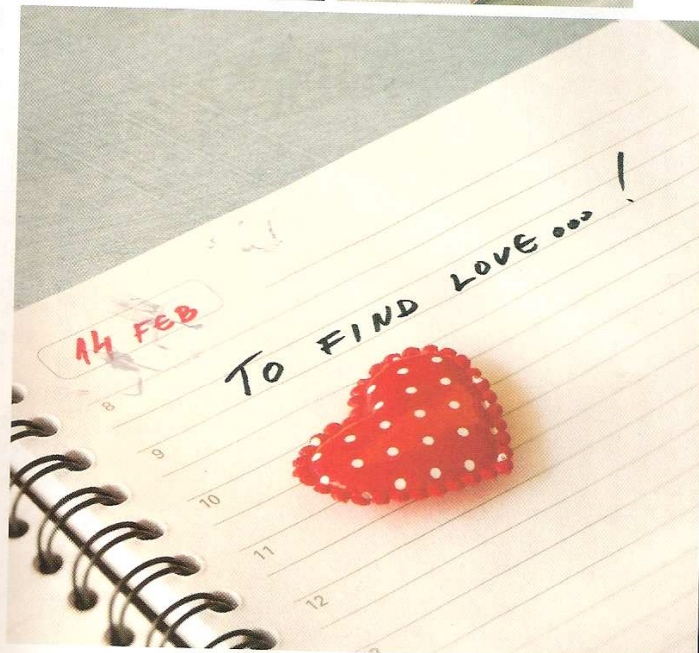 14 FEB
TO FIND LOVE...!
8
9
10
11
12